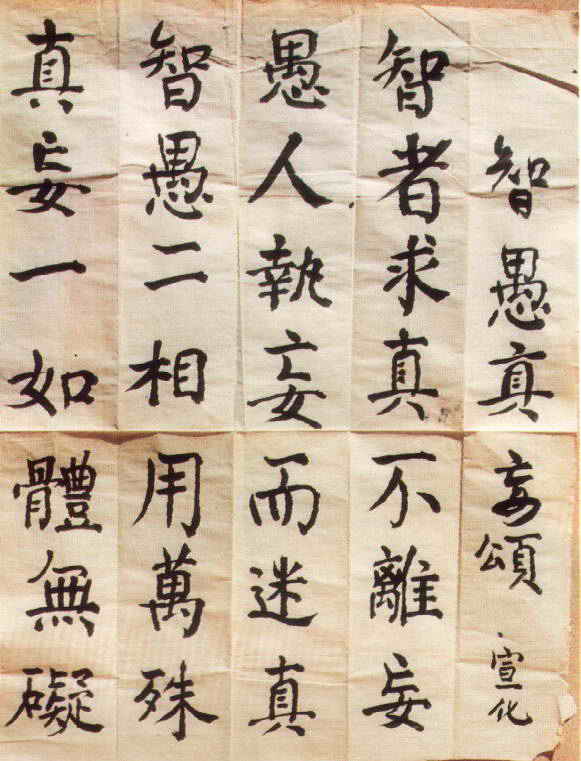 智愚真妄頌 宣化
智者求真不離妄
愚人執妄而迷真
智愚二相用萬殊
真妄一如體無礙